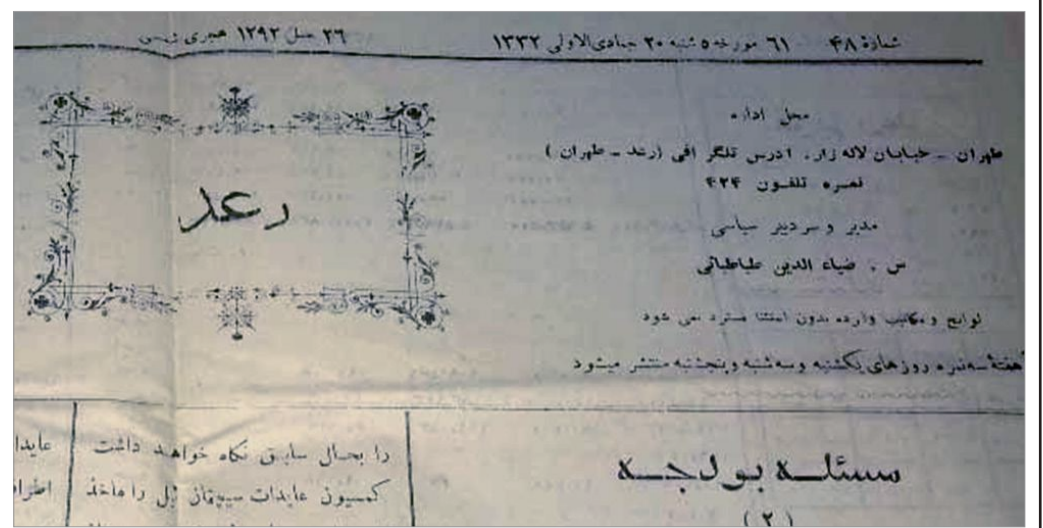 شمارهٔ ۴۸ ۶۱ مورخه ۵ شنبه ۲۰ جمادی‌الاولی ۱۳۳۲ ۲۶ حمل ۱۲۹۲ هجری شمسی
رعد
محل اداره
طهران ـ خیابان لاله زار. ادرس تلگرافی (رعد ـ طهران)
نمره تلفون ۴۲۴
مدیر و سردبیر سیاسی
س . ضیاء الدین طباطبائی
لوایح و مکاتیب وارده بدون امضا مسترد نمی شود
هفتهٔ سه نمره روزهای یکشنبه و سه‌شنبه و پنجشنبه منتشر میشود
مسئلـه بـودجـه
(۲)
را بحال سابق نگاه خواهد داشت
کمسیون عایدات سیچقان ئیل را ماخذ